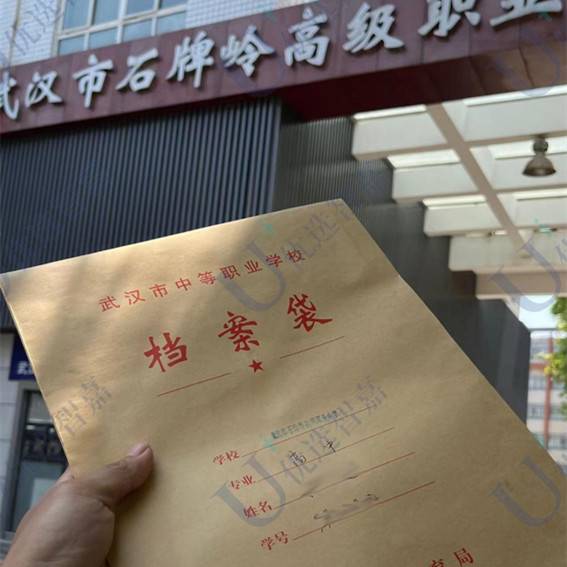 武汉市石牌岭高级职业
武汉市中等职业学校
档案袋
学校
专业 高中
姓名
学号
育局
U+优选智嘉